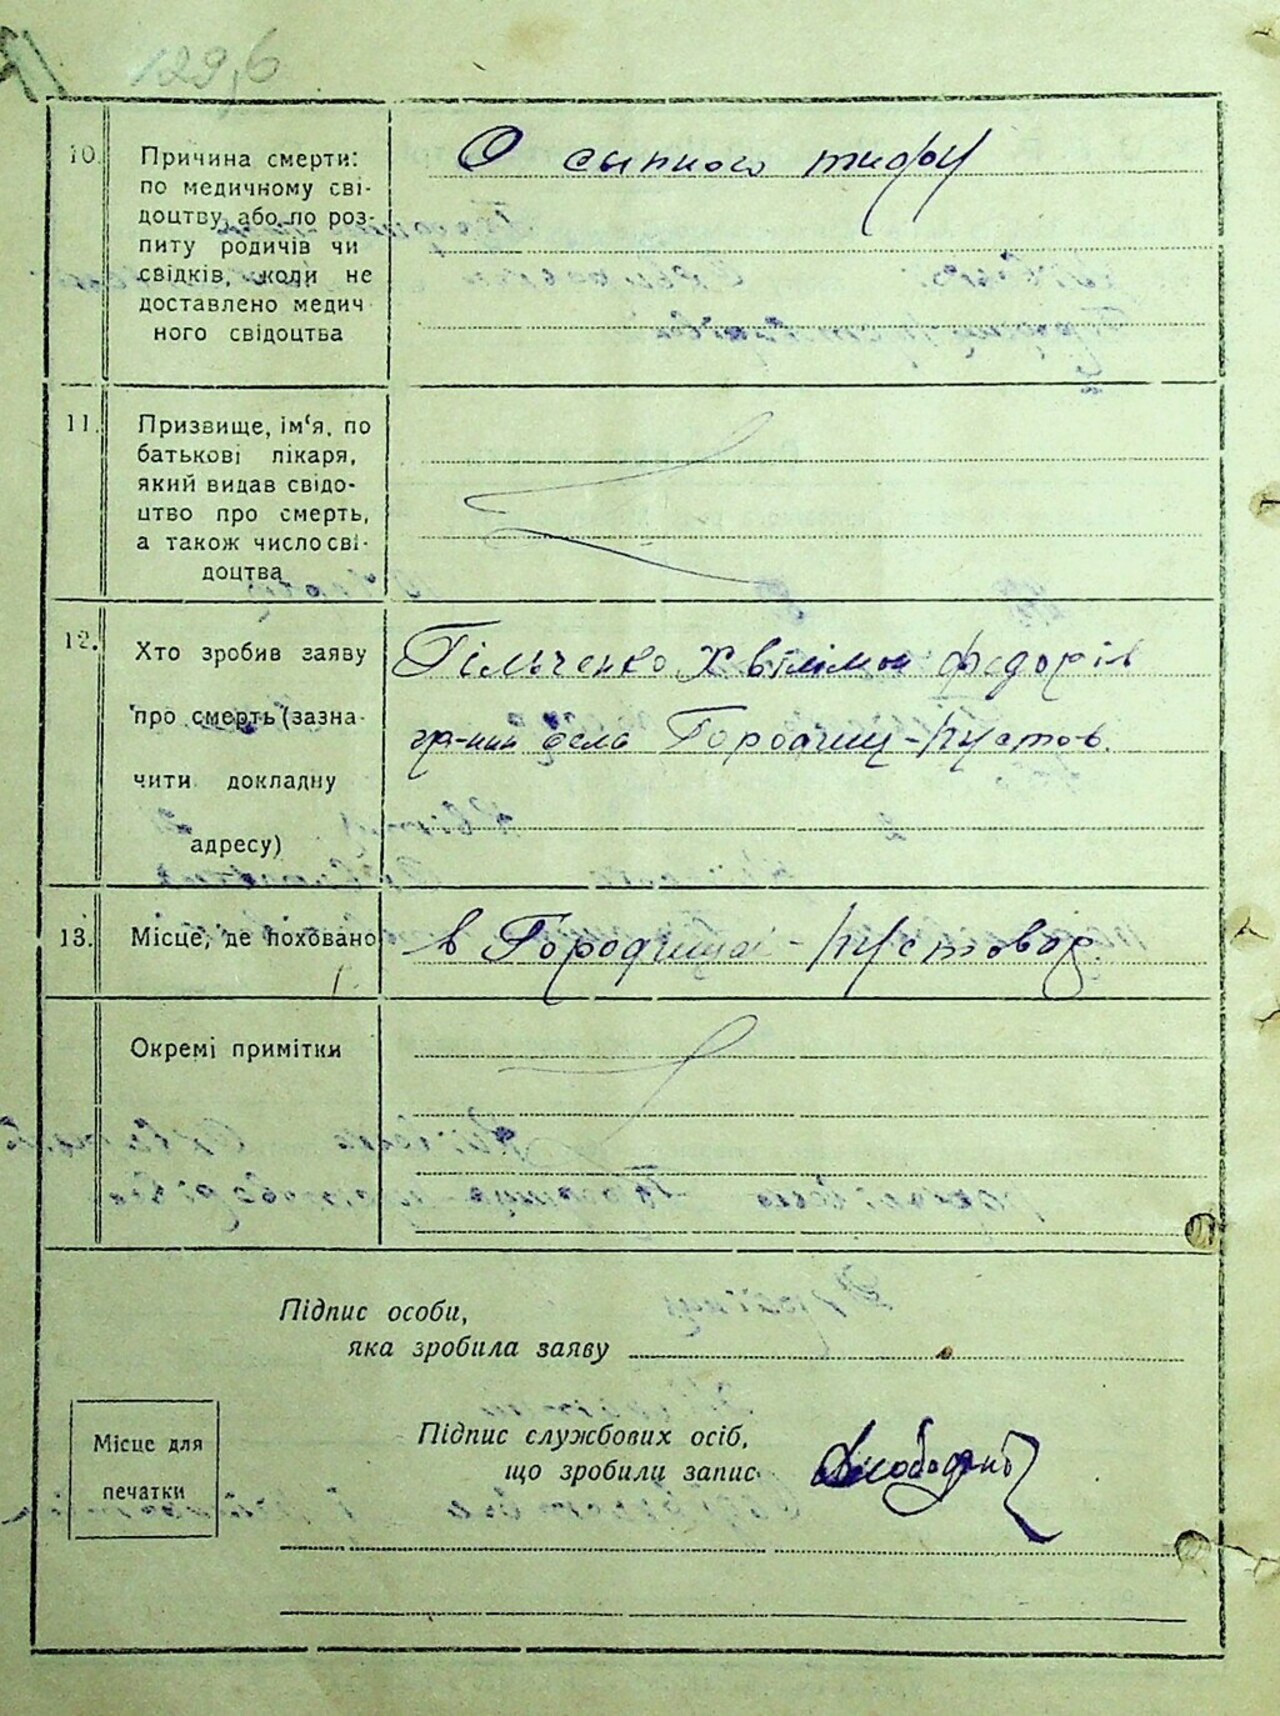 129,6
10. Причина смерти:
по медичному сві-
доцтву, або по роз-
питу родичів чи
свідків, коли не
доставлено медич
ного свідоцтва
О сыпного тифу
11. Призвище, ім'я, по
батькові лікаря,
який видав свідо-
цтво про смерть,
а також число сві-
доцтва
12. Хто зробив заяву
про смерть (зазна-
чити докладну
адресу)
Гільченко Хвілімон Федорів
гр-нин села Городищ-Пустов.
13. Місце, де поховано
в Городищі-Пустовар.
Окремі примітки
Підпис особи,
яка зробила заяву
Місце для
печатки
Підпис службових осіб,
що зробили запис